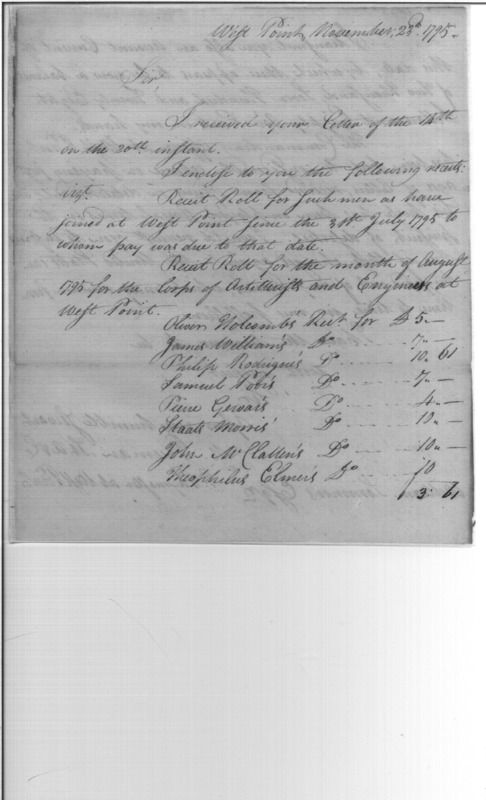 West Point November, 23rd 1795
Sir
I received your Letter of the 14th
on the 20th instant.
I enclose to you the following receits.
vizt.
Receit Roll for such men as have
joined at West Point since the 31st July 1795 to
whom pay was due to that date.
Receit Roll for the month of August
1795 for the Corps of Artillerists and Engineers at
West Point.
Oliver Holcombs Rect for $ 5 —
James William's Do 7 —
Philip Rodrigue's Do 10. 61
Samuel Do 7 —
Piere Gervais Do 4 —
Staats Morris' Do 10 —
John McClallen's Do 10 —
Theophilus Elmer's Do 10
61